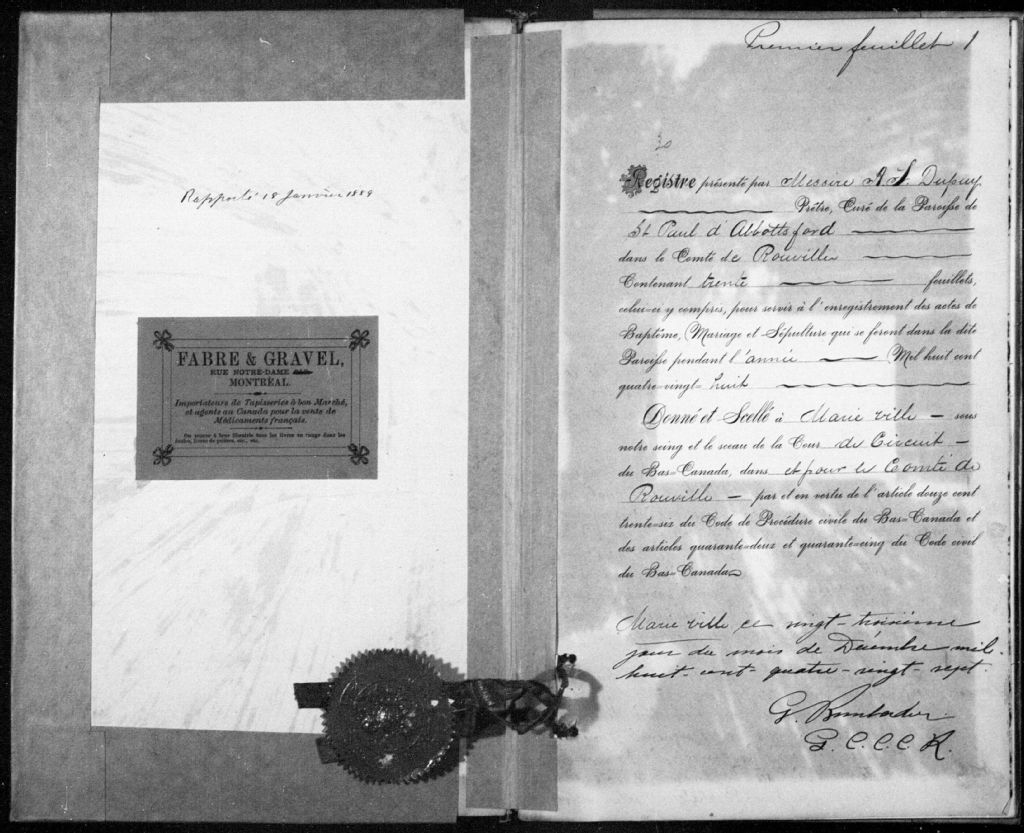 Rapporté 18 Janvier 1889
FABRE & GRAVEL,
RUE NOTRE-DAME
MONTRÉAL.
Importateurs de Tapisseries à bon Marché,
et agents au Canada pour la vente de
Médicaments français.
On trouve à leur librairie tous les livres en usage dans les
écoles, livres de prières, etc., etc.
Premier feuillet 1
Registre présenté par Messire A S. Dupuy
Prêtre, Curé de la Paroisse de
St Paul d'Abbottsford
dans le Comté de Rouville
Contenant trente feuillets,
celui-ci y compris, pour servir à l'enregistrement des actes de
Baptême, Mariage et Sépulture qui se feront dans la dite
Paroisse pendant l'année Mil huit cent
quatre-vingt huit
Donné et Scellé à Marieville — sous
notre seing et le sceau de la Cour de Circuit —
du Bas-Canada, dans et pour le Comté de
Rouville — par et en vertu de l'article douze cent
trente-six du Code de Procédure civile du Bas-Canada et
des articles quarante-deux et quarante-cinq du Code civil
du Bas-Canada
Marieville ce vingt-troisième
jour du mois de Décembre mil-
huit-cent-quatre-vingt-sept.
G.
G. C. C. C. R.